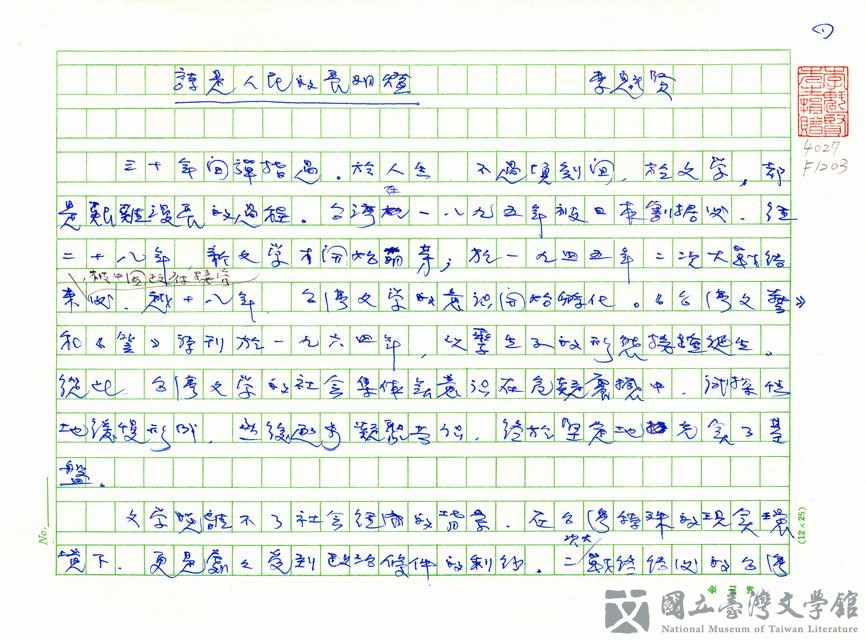 1
詩是人民的長明燈 李魁賢
李魁賢
李魁賢贈
4027
F1203
三十年間彈指過。於人生 不過頃刻間,於文學,却
是艱難漫長的過程。台灣在一八九五年被日本割據後,經
二十八年 新文學才開始萌芽;於一九四五年二次大戰結
被中國政府接管
束後,越十八年,台灣文學的意識開始孵化。《台灣文藝》
和《笠》詩刊於一九六四年,以孿生子的形態接踵誕生。
從此 台灣文學的社會集体意識在危疑震撼中,試探性
地緩慢形成,然後逐步凝聚共識,終於堅定地充實了基
盤。
文學脫離不了社會經濟的背景,在台灣特殊的現實環
境下,更是處處受到政治條件的制約。二次大戰終結後的台灣
No.
(12×25)
國立臺灣文學館
National Museum of Taiwan Literature